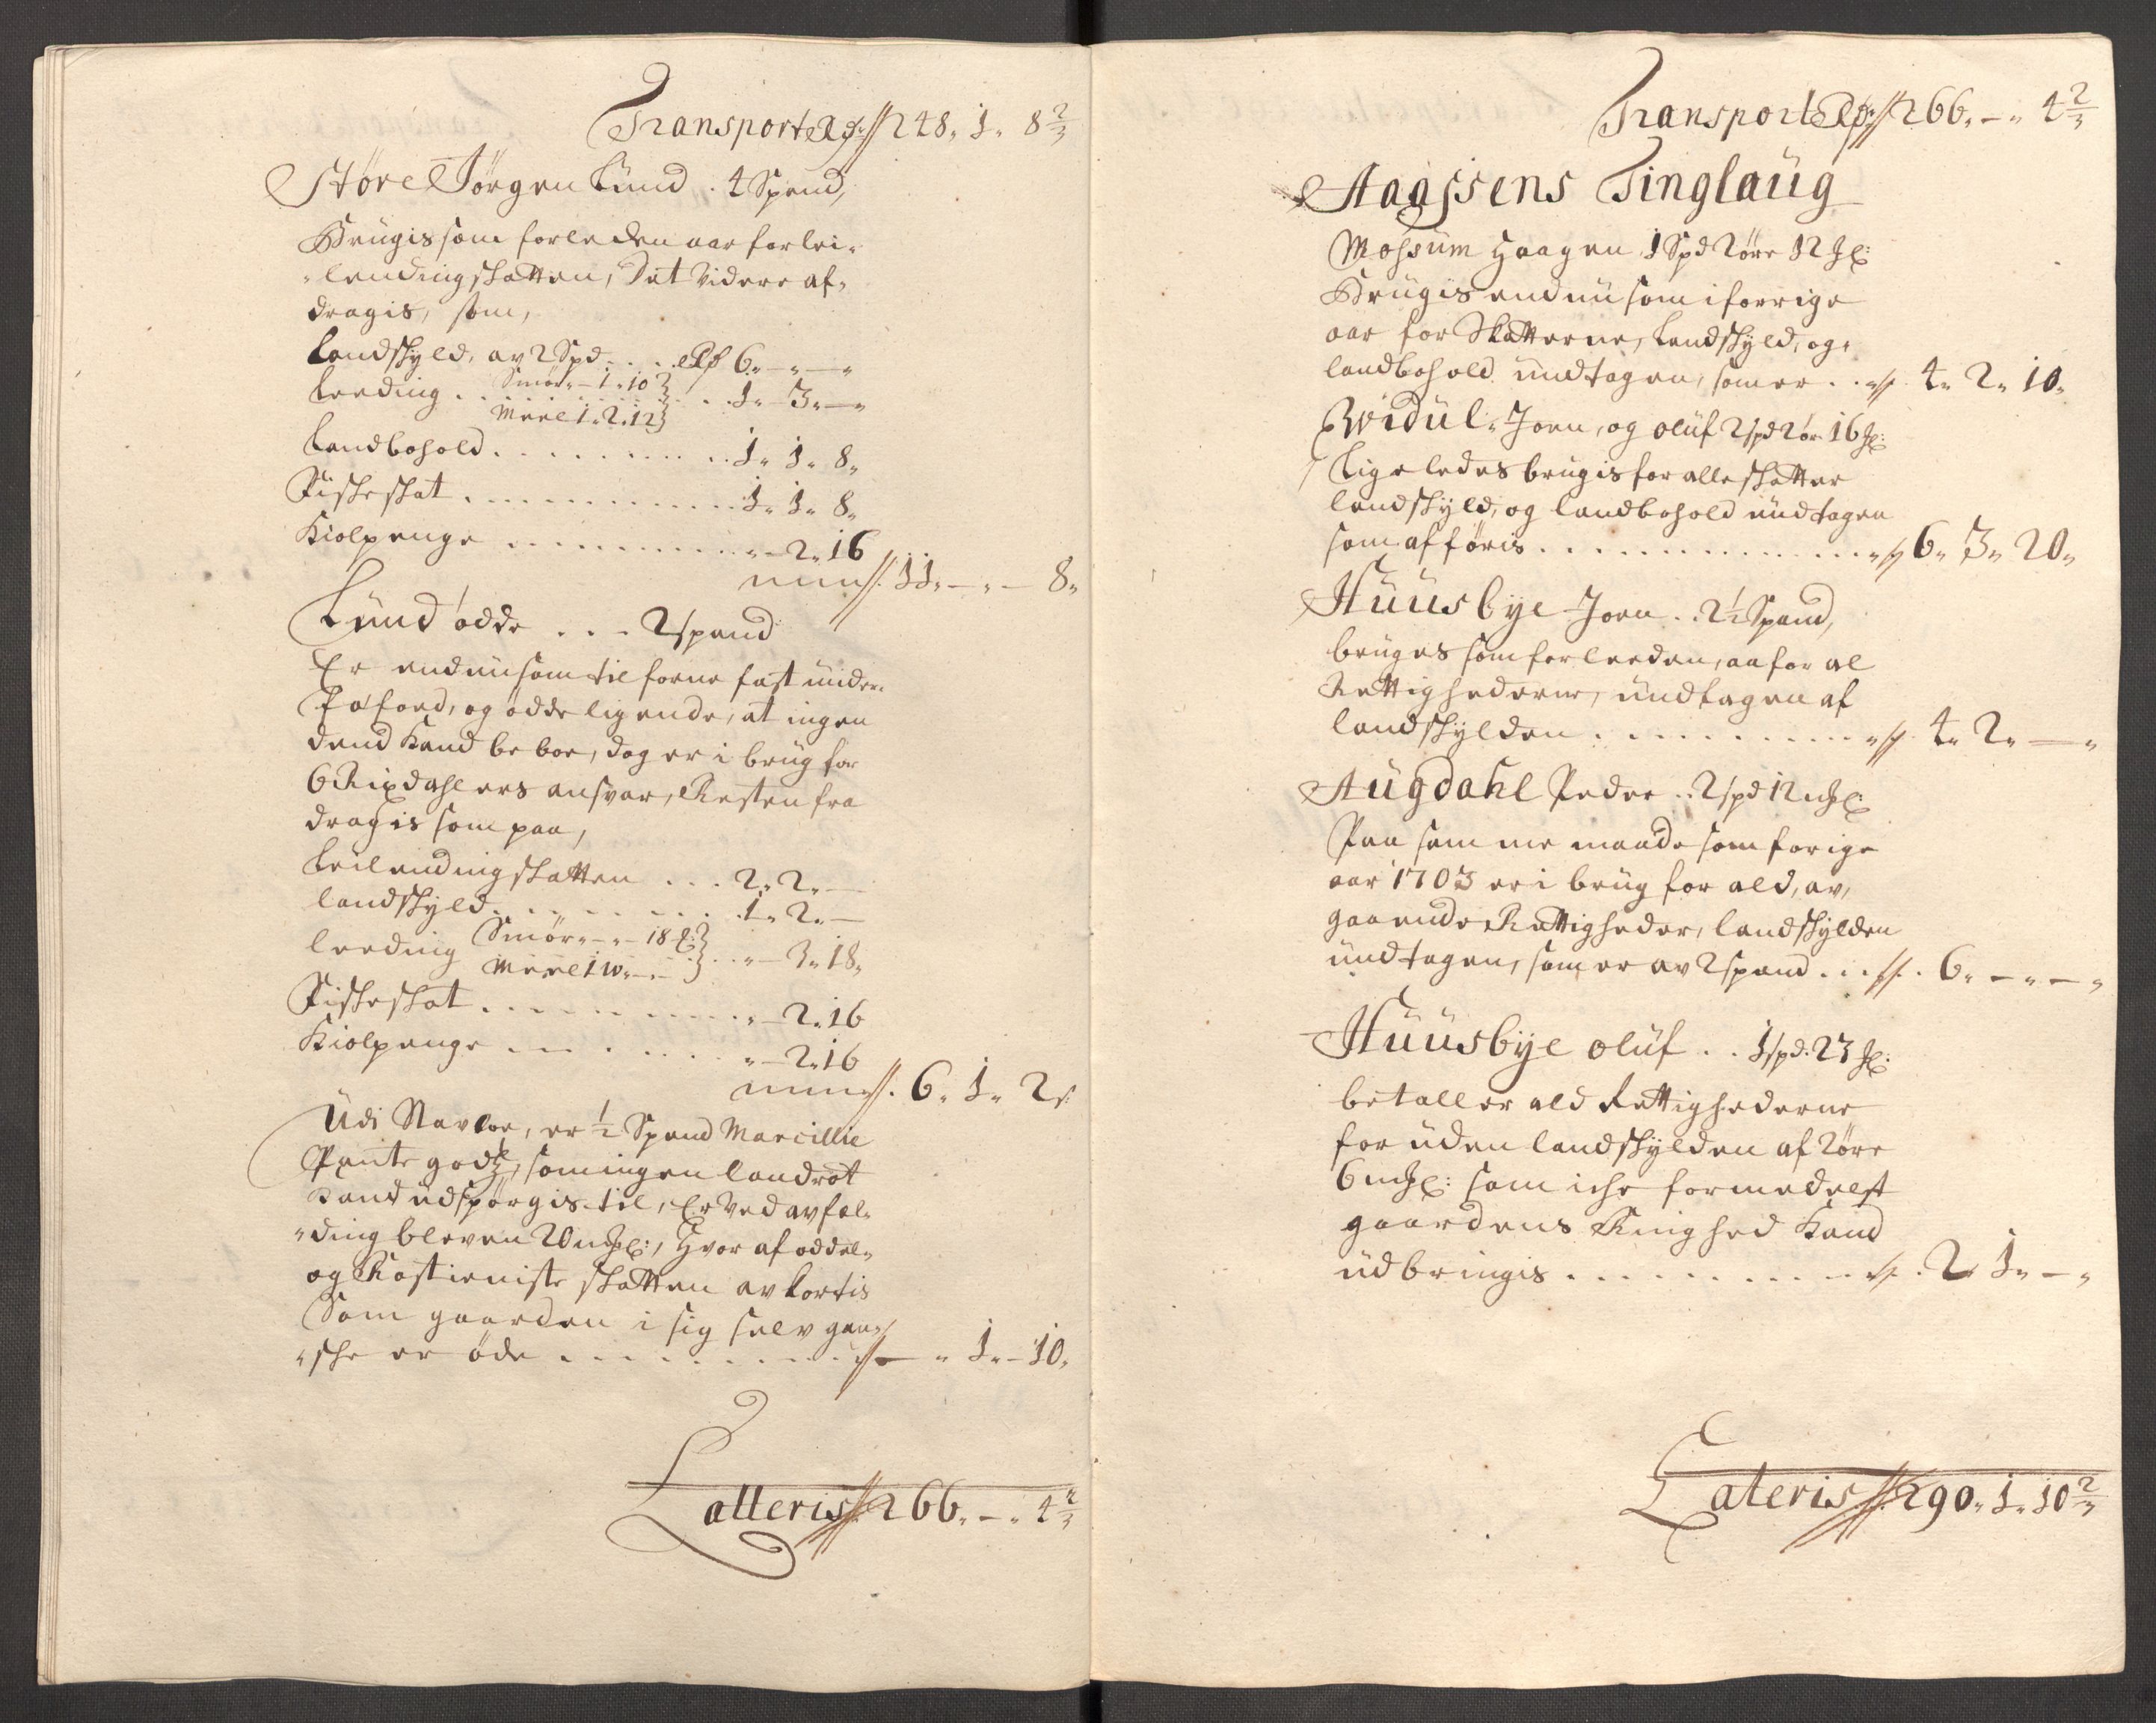 Transport Rdr: 248. 1. 8 2/3
Støre Jörgen Lund. 4 Spand,
Brugis som forleden aar for lei-
lendingskatten, Det videre af-
dragis, som,
Landskyld, av 2 Spd. . . . Rdr 6. - . -
Leeding . Smör. - 1. 10 . . 1. 3. -
Meel 1. 2. 12
Landbohold. . . . . . . . . 1. 1. 8.
Fiskeskat . . . . . . . . . 1. 1. 8.
Kiolpenge . . . . . . . . . - 2. 16
11. - . - 8.
Lund ödde . . . 2 spand
Er endnu som tilforne fast under
og ödde ligende, at ingen
dend kand beboe, dog er i brug for
6 Rixdahlers ansvar, Resten fra
dragis som paa,
Leilendingskatten . . . 2. 2. -
landskyld. . . . . . . . 1. 2. -
leeding Smör. - . - 18 . . - 3. 18.
Meel 1 w. - . -
Fiskeskat . . . . . . . . . - 2. 16
Kiolpenge . . . . . . . . . - 2. 16
6. 1. 2.
Udi Navloe, er 1/2 Spand Marcillie
Pante godtz, som ingen landrot
kand udspörgis til, Er ved avfel-
ding bleven 20 mkl:, Hvor af oddel-
og Rostieniste skatten avkortis
Som gaarden i sig selv gan-
ske er öde . . . . . . . . . - . 1. - 10.
Latteris 266. - . 4 2/3
Transport Rdr: 266. - . 4 2/3
Aagssens Tinglaug
Mossum Haagen 1 Spd 2 öre 12 mkl:
Brugis endnu som i forrige
aar for Skatterne, Landskyld, og
landbohold undtagen, som er . . 4. 2. 10.
Widul. Joen, og oluf 2 spd 2 ör 16 mkl:
Ligeledes brugis for alle skatter
landskyld, og landbohold undtagen
som afföris . . . . . . . . . . . 6. 3. 20.
Huusbye Joen . . 2 1/2 Spand,
bruges som forleeden, aa for al
Rettighederne, undtagen af
landskylden . . . . . . . . . . 4. 2. -
Augdahl Peder . . 2 spd 12 mkl:
Paa samme maade som forige
aar 1703 er i brug for ald, av,
gaaende Rettigheder, landskylden
undtagen, som er av 2 spand . . . 6. - . -
Huusbye oluf . . 1 spd. 23 mkl:
betaller ald Rettighederne
for uden landskylden af 2 öre
6 mkl: som iche formedelst
gaardens Ringhed kand
udbringis . . . . . . . . . . . 2 1. -
Lateris 290. 1. 10 2/3